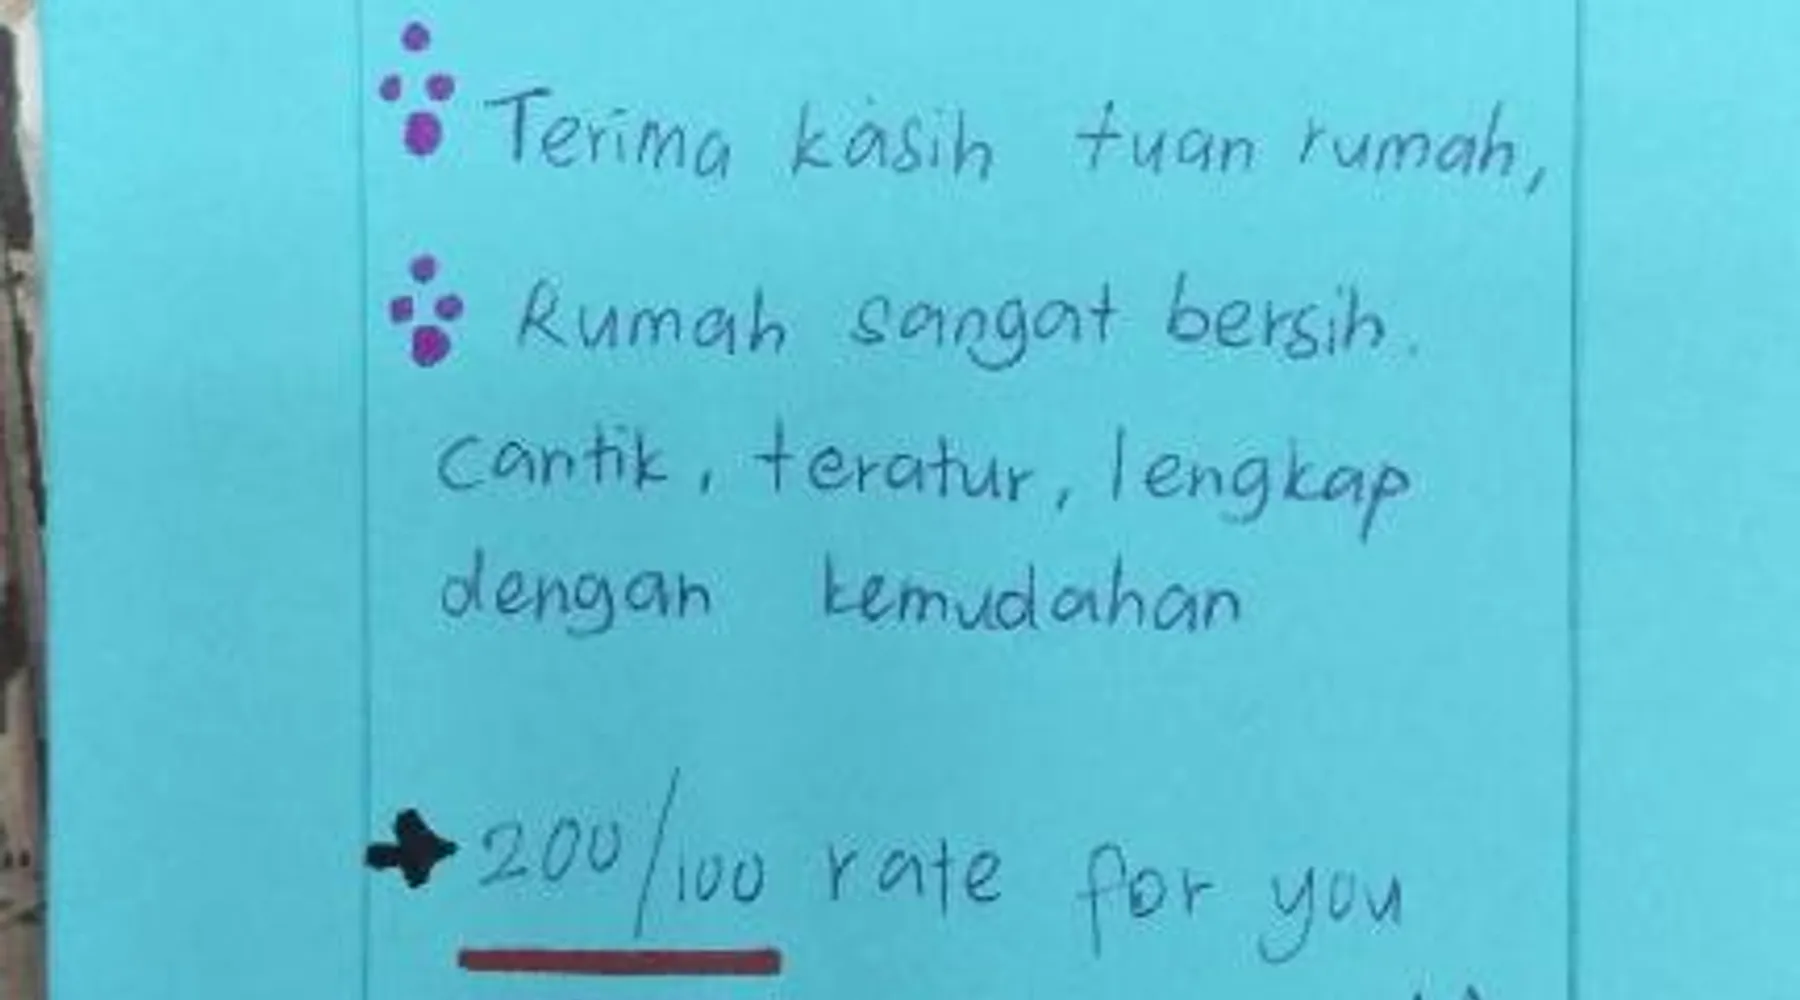 Terima kasih tuan rumah,
Rumah sangat bersih.
cantik, teratur, lengkap
dengan kemudahan
200/100 rate for you